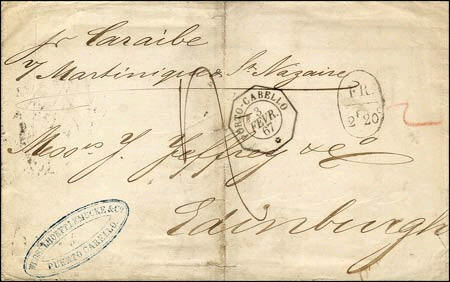 pr Caraïbe
v/ Martinique & St. Nazaire
PORTO-CABELLO
3
FÉVR.
67
F.R.
2f20
Messrs J. Jeffrey & Co
Edinburgh
& CO
PUERTO CABELLO